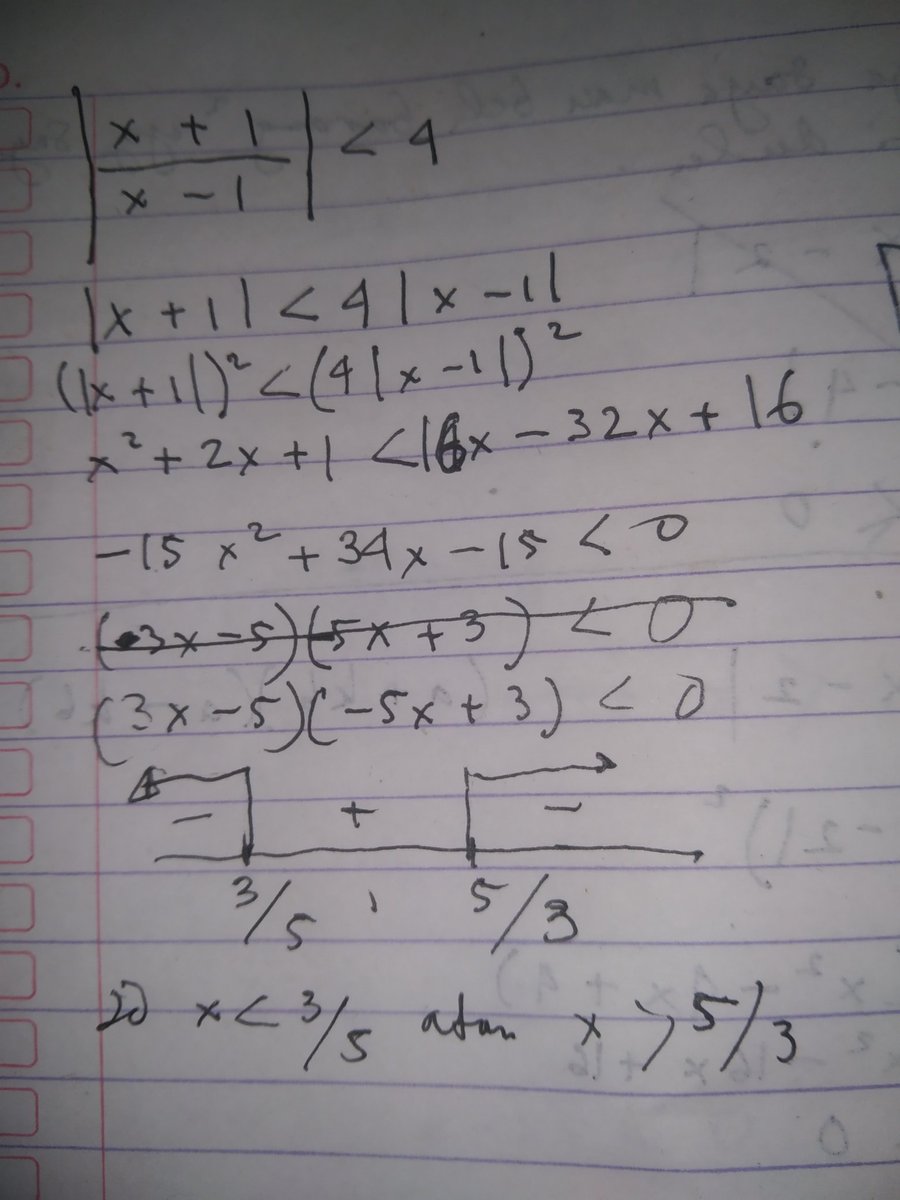 |x + 1 / x - 1| < 4
|x + 1| < 4 |x - 1|
(|x + 1|)² < (4|x - 1|)²
x² + 2x + 1 < 16x - 32x + 16
-15 x² + 34x - 15 < 0
(3x - 5)(-5x + 3) < 0
(3x - 5)(-5x + 3) < 0
- + -
3/5 , 5/3
x < 3/5 atau x > 5/3